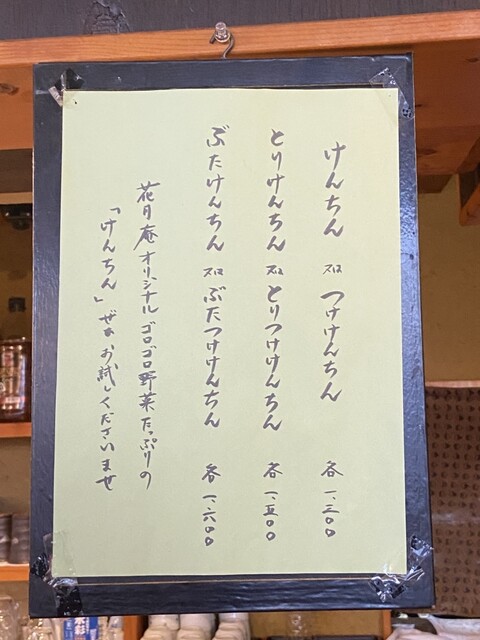 けんちん 又は つけけんちん 各一、三〇〇
とりけんちん 又は とりつけけんちん 各一、五〇〇
ぶたけんちん 又は ぶたつけけんちん 各一、六〇〇
花月庵オリジナルゴロゴロ野菜たっぷりの
「けんちん」ぜひお試しくださいませ